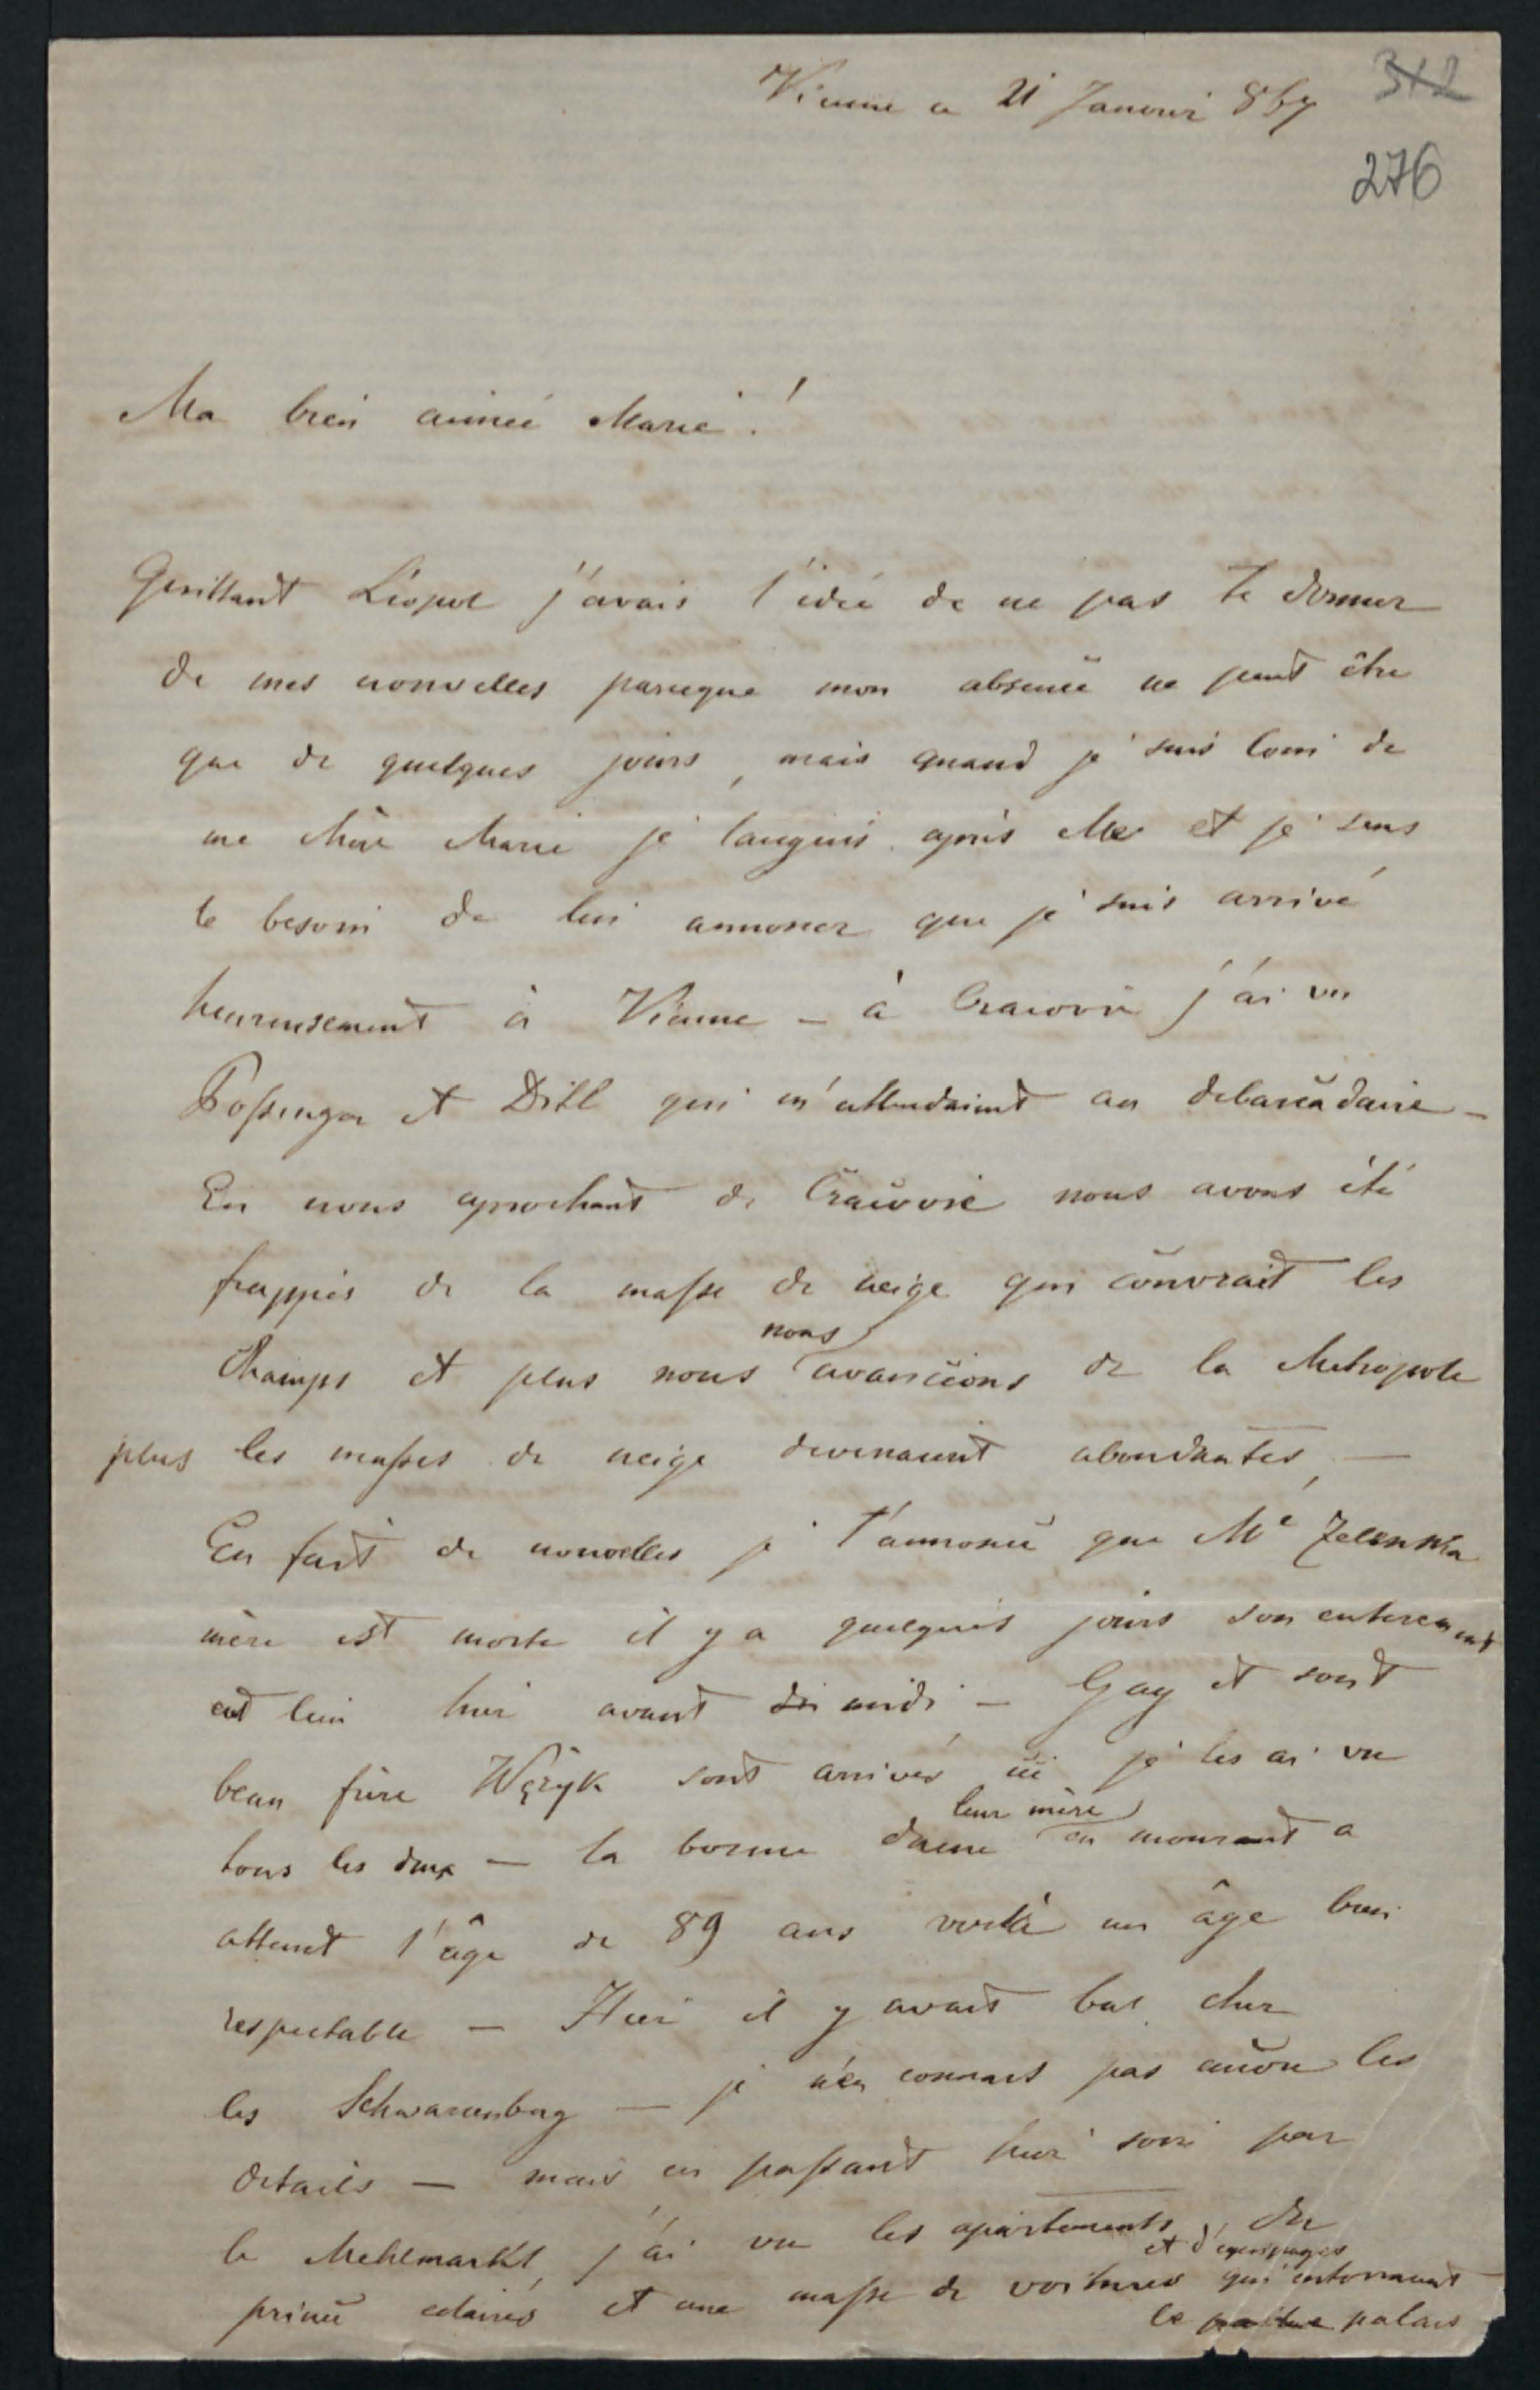 Vienne ce 21 Janvier 867
312
276
Ma bien aimée Marie!
Quittant Léopol j'avais l'idée de ne pas te donner
de mes nouvelles parceque mon absence ne peut être
que de quelques jours, mais quand je suis loin de
ma chère Marie je languis après elle et je sens
le besoin de lui annoncer que je suis arrivé
heureusement à Vienne – à Cracovie j'ai vu
Possinger et Ditl qui m'attendaient au debarcadaire –
En nous aprochant de Cracovie nous avons été
frappés de la masse de neige qui couvrait les
champs et plus nous nous avancions de la Metropole
plus les masses de neige devenaient abondantes, –
En fait de nouvelles je t'annonce que Me Zelenska
mère est morte il y a quelques jours son enterement
eut lieu hier avant midi – Gay et son
beau frère Wężyk sont arrivés ici je les ai vu
tous les deux – la bonne dame leur mère en mourant a
atteint l'âge de 89 ans voilà un âge bien
respectable – Hier il y avait bal chez
les Schwarzenberg – je n'en connais pas encore les
details – mais en passant hier soir par
le Mehlmarkt, j'ai vu les apartements du
prince eclairés et une masse de voitures et d'equipages qui entouraient
le palais